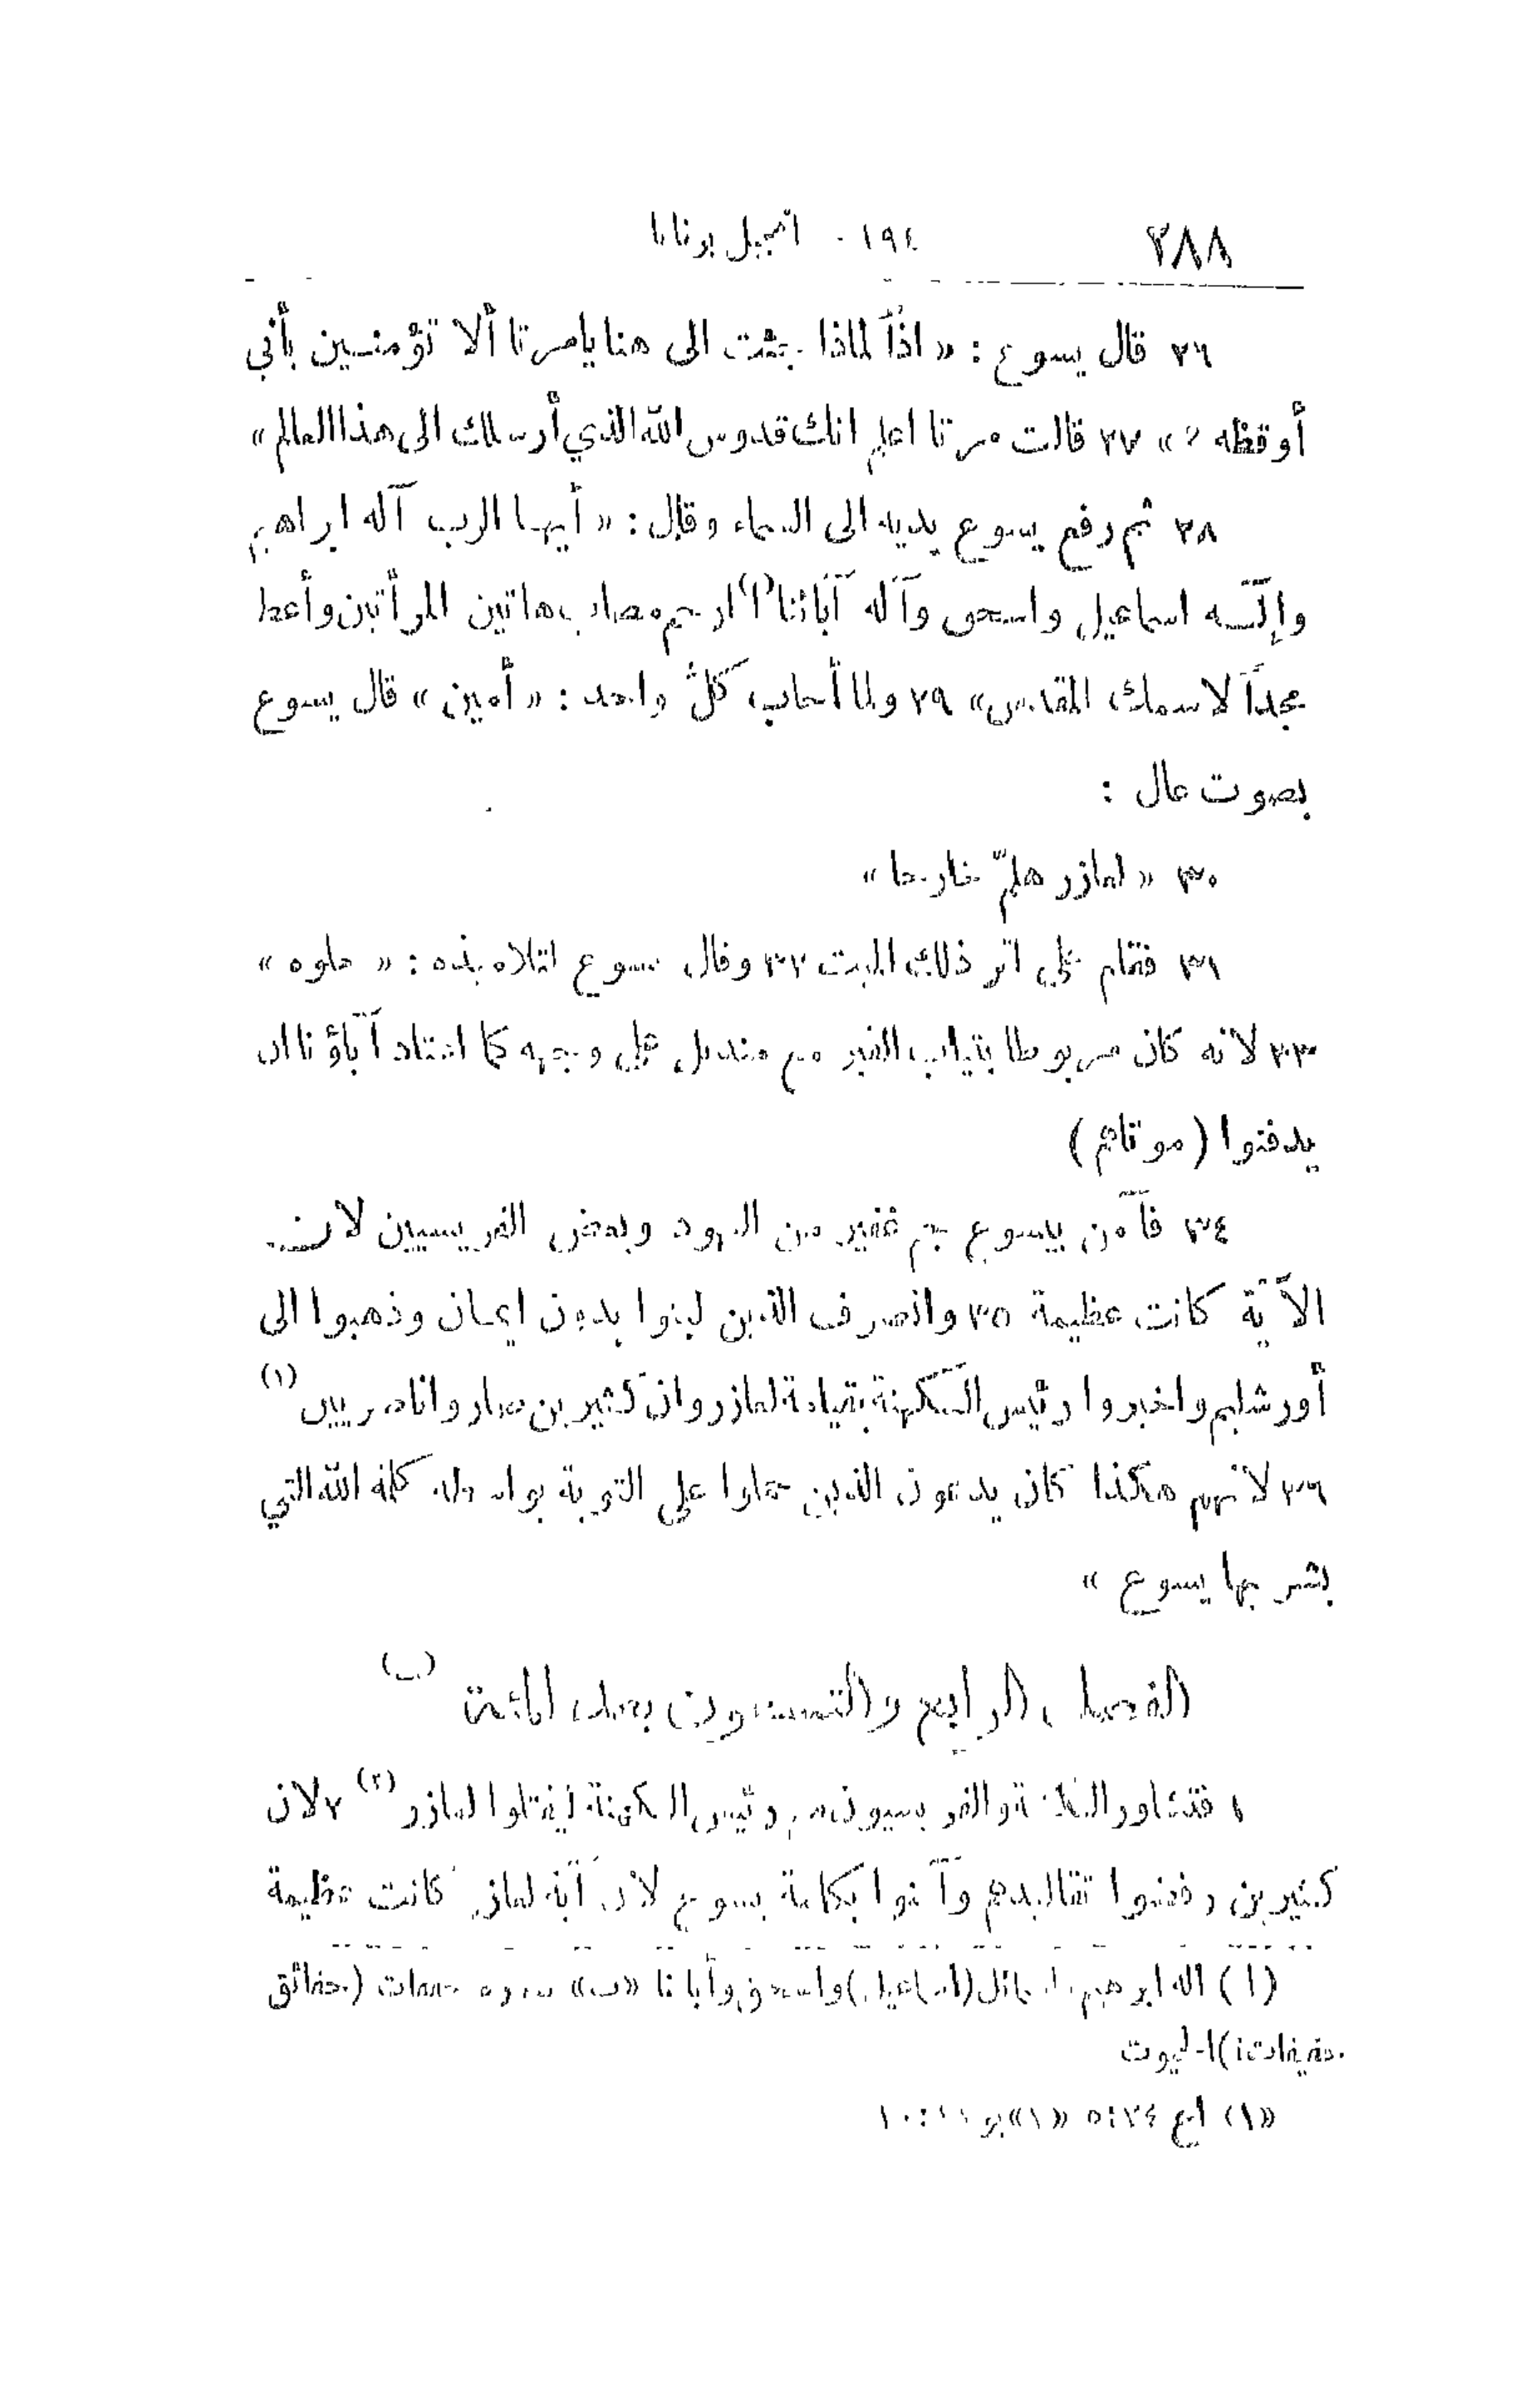 ٢٨٨ ١٩٤ - انجيل برنابا
٢٦ قال يسوع : « اذاً لماذا جئت الى هنا يامرتا ألا تؤمنين بأني
أوقظه ؟ » ٢٧ قالت مرتا اعلم انك قدوس الله الذي أرسلك الى هذا العالم »
٢٨ ثم رفع يسوع يديه الى السماء وقال : « أيها الرب آله ابراهيم
وإلٓه اسماعيل واسحق وآله آبائنا (ا) ارحم مصاب هاتين المرأتين وأعط
مجداً لاسمك المقدس » ٢٩ ولما أجاب كلُّ واحد : « أمين » قال يسوع
بصوت عال :
٣٠ « لعازر هلمّ خارجا »
٣١ فقام على اثر ذلك الميت ٣٢ وقال يسوع لتلاميذه : « حلوه »
٣٣ لانه كان مربوطا بثياب القبر مع منديل على وجهه كما اعتاد آباؤنا ان
يدفنوا ( موتاهم )
٣٤ فآمن بيسوع جم غفير من اليهود وبعض الفريسيين لان
الآية كانت عظيمة ٣٥ وانصرف الذين لبثوا بدون ايمان وذهبوا الى
أورشليم واخبروا رئيس الكهنة بقيامة لعازر وان كثيرين صاروا ناصريين (١)
٣٦ لانهم هكذا كان يدعون الذين حملوا على التوبة بواسطة كلمة الله التي
بشر بها يسوع »
الفصل الرابع والتسعون بعد المائة (ب)
١ فتشاور الكتبة والفريسيون مع رئيس الكهنة ليقتلوا لعازر (٢) ٢ لان
كثيرين رفضوا تقاليدهم وآمنوا بكلمة يسوع لان آية لعازر كانت عظيمة
(ا) اله ابرهيم (اسماعيل) واسحق وأبانا «ب» سوره (حقائق
«١» اع ٢٤:٥ «٢» يو